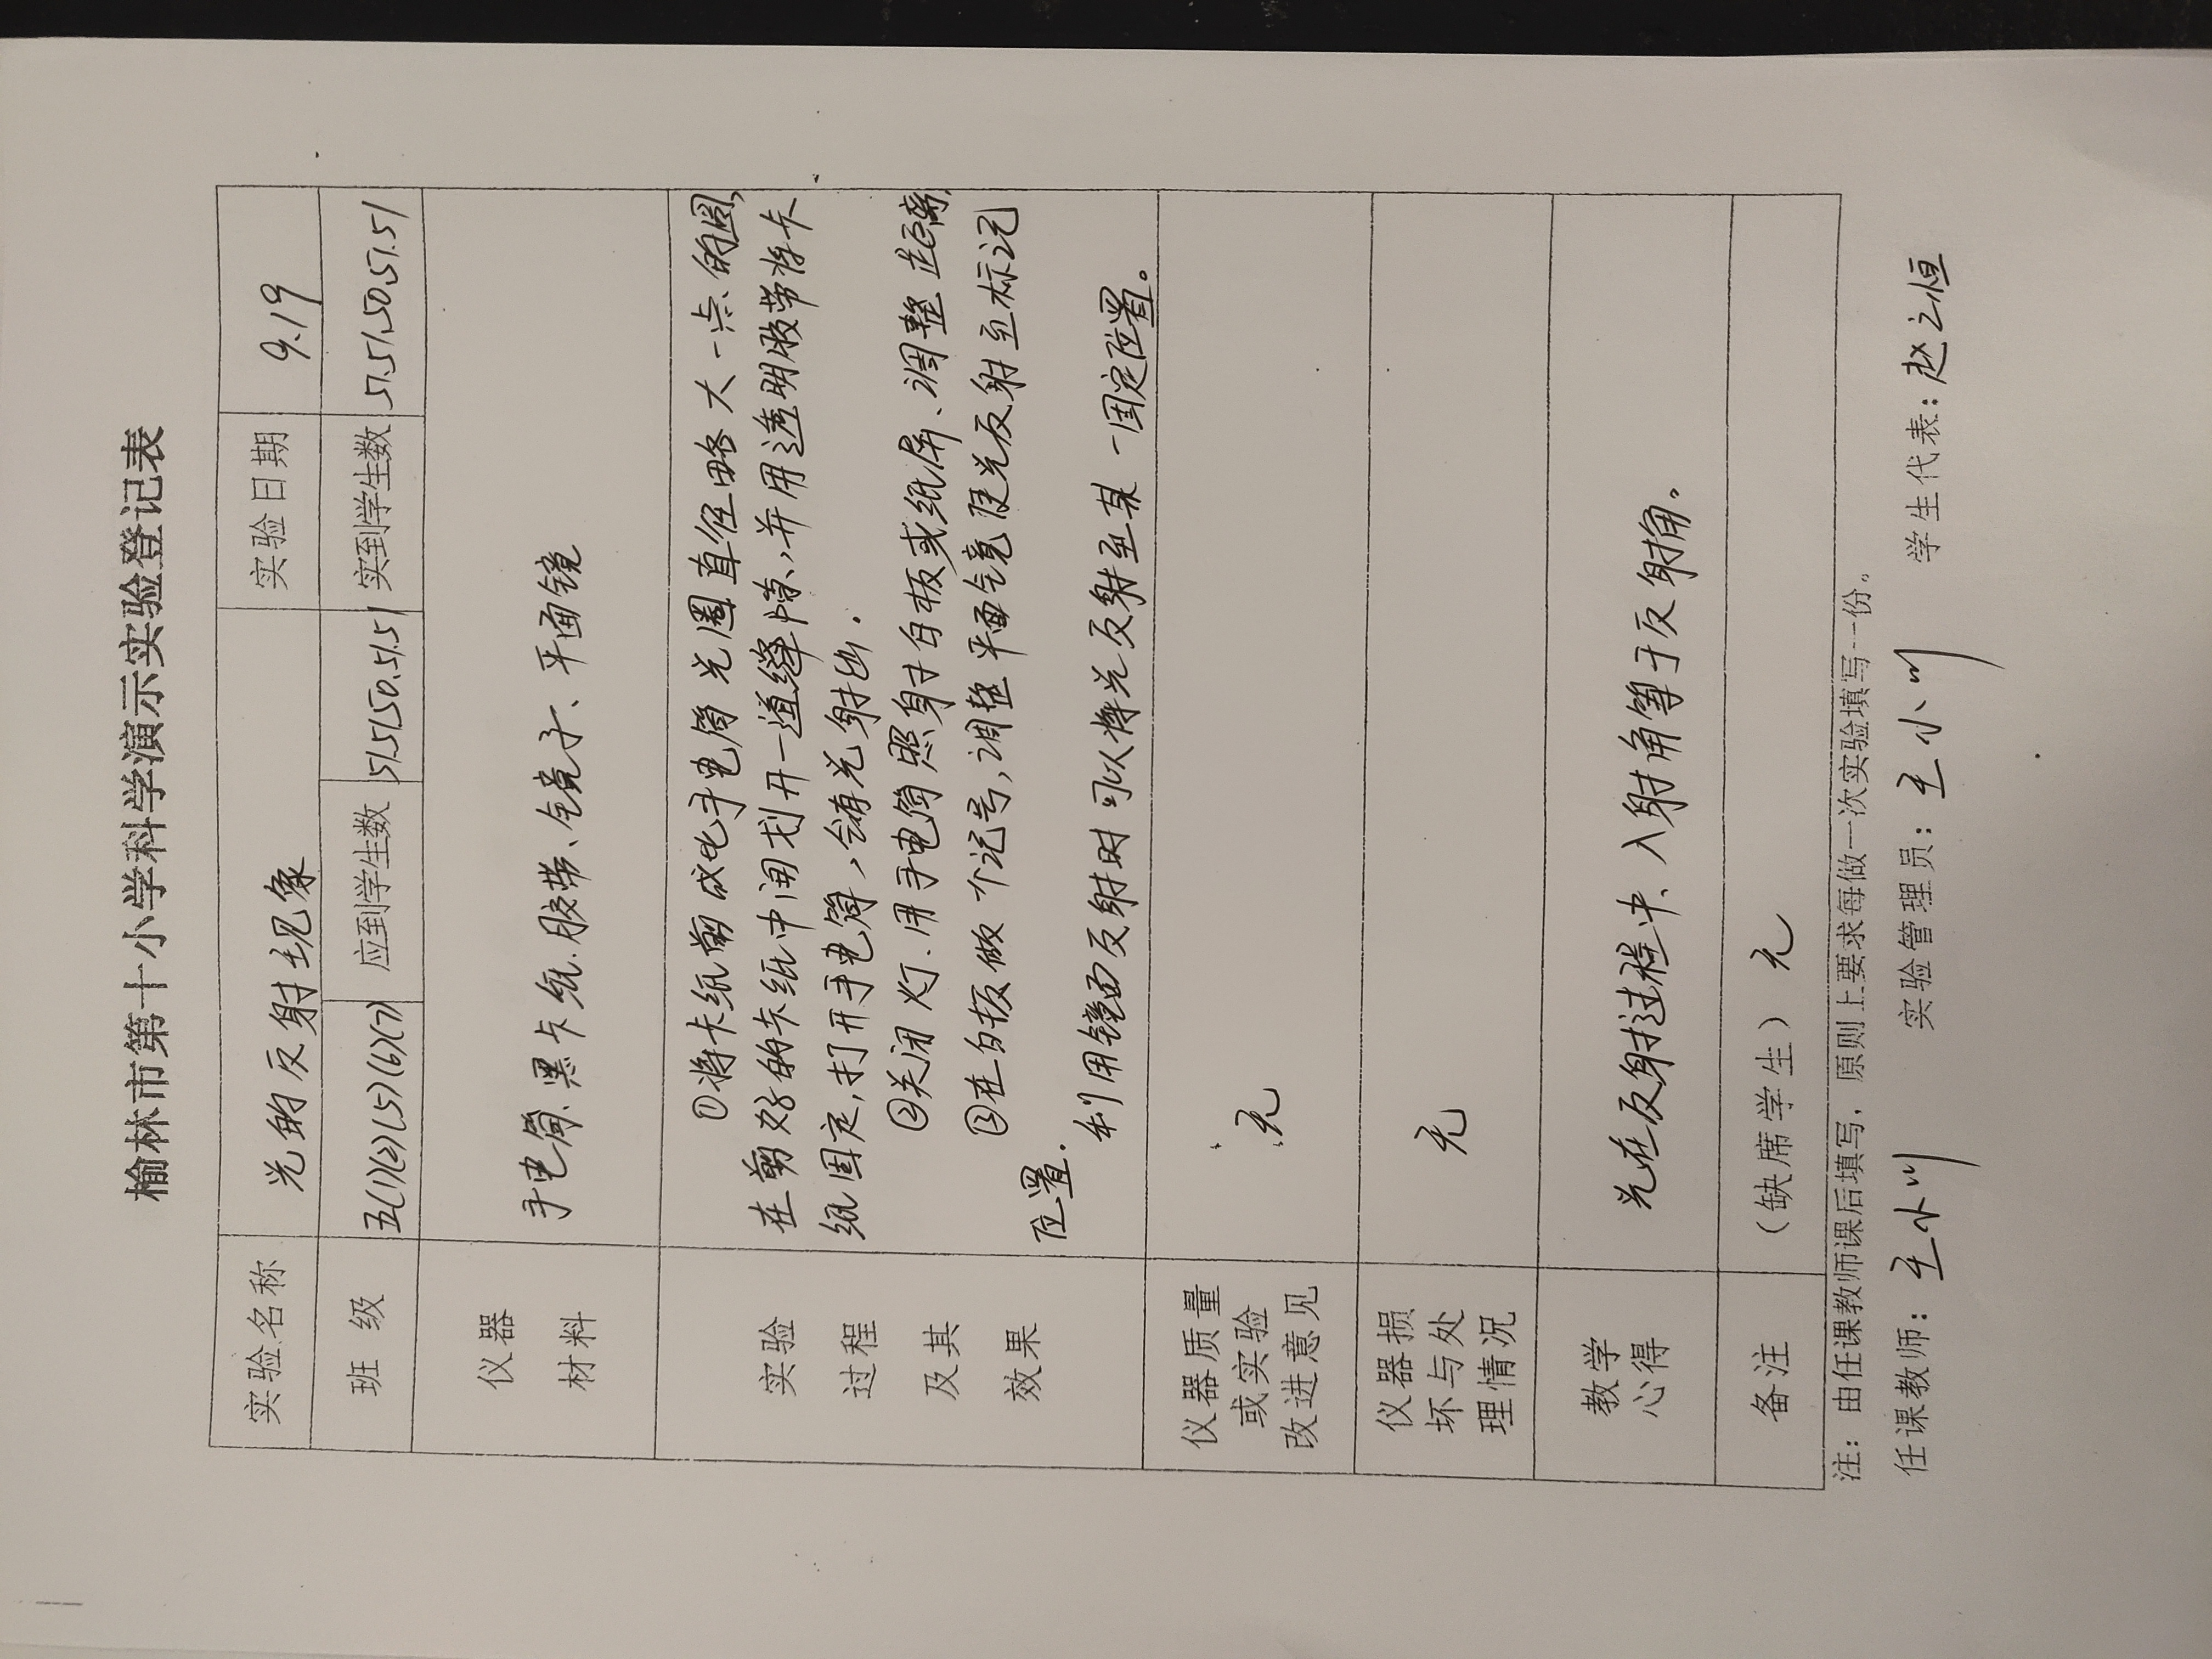 榆林市第十小学科学演示实验登记表
实验名称 光的反射现象 实验日期 9.19
班 级 五(1)(2)(5)(6)(7) 应到学生数 51.51.50.51.51 实到学生数 51.51.50.51.51
仪器
材料
手电筒、黑卡纸、胶带、镜子、平面镜
实验
过程
及其
效果
①将卡纸剪成比手电筒光圈直径略大一点的圆,
在剪好的卡纸中间划开一道缝隙,并用透明胶带将卡
纸固定,打开手电筒,会有光射出.
②关闭灯、用手电筒照射白板或纸屏、调整距离,
③在白板做个记号,调整平面镜使光反射至标记
位置.
利用镜面反射时可以将光反射至某一固定位置。
仪器质量
或实验
改进意见
无
仪器损
坏与处
理情况
无
教学
心得
光在反射过程中、入射角等于反射角。
备注 (缺席学生) 无
注:由任课教师课后填写,原则上要求每做一次实验填写一份。
任课教师: 王小川 实验管理员: 王小川 学生代表: 赵之恒